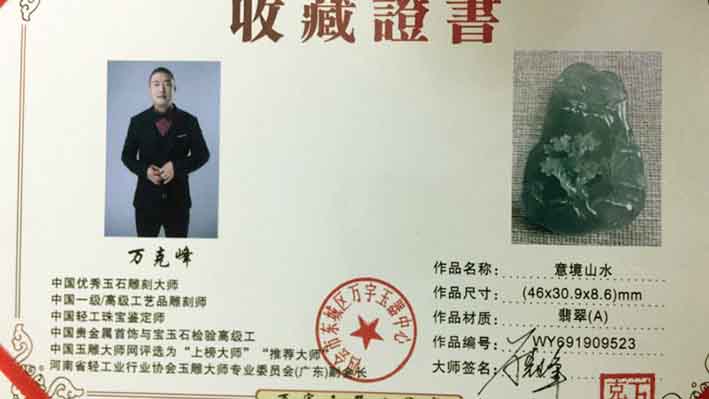 收藏證書
万克峰
中国优秀玉石雕刻大师
中国一级/高级工艺品雕刻师
中国轻工珠宝鉴定师
中国贵金属首饰与宝玉石检验高级工
中国玉雕大师网评选为“上榜大师”“推荐大师”
河南省轻工业行业协会玉雕大师专业委员会(广东)副会长
市东城区万字玉器中心
作品名称: 意境山水
作品尺寸: (46x30.9x8.6)mm
作品材质: 翡翠(A)
作品编号: WY691909523
大师签名: 万克峰
万
克